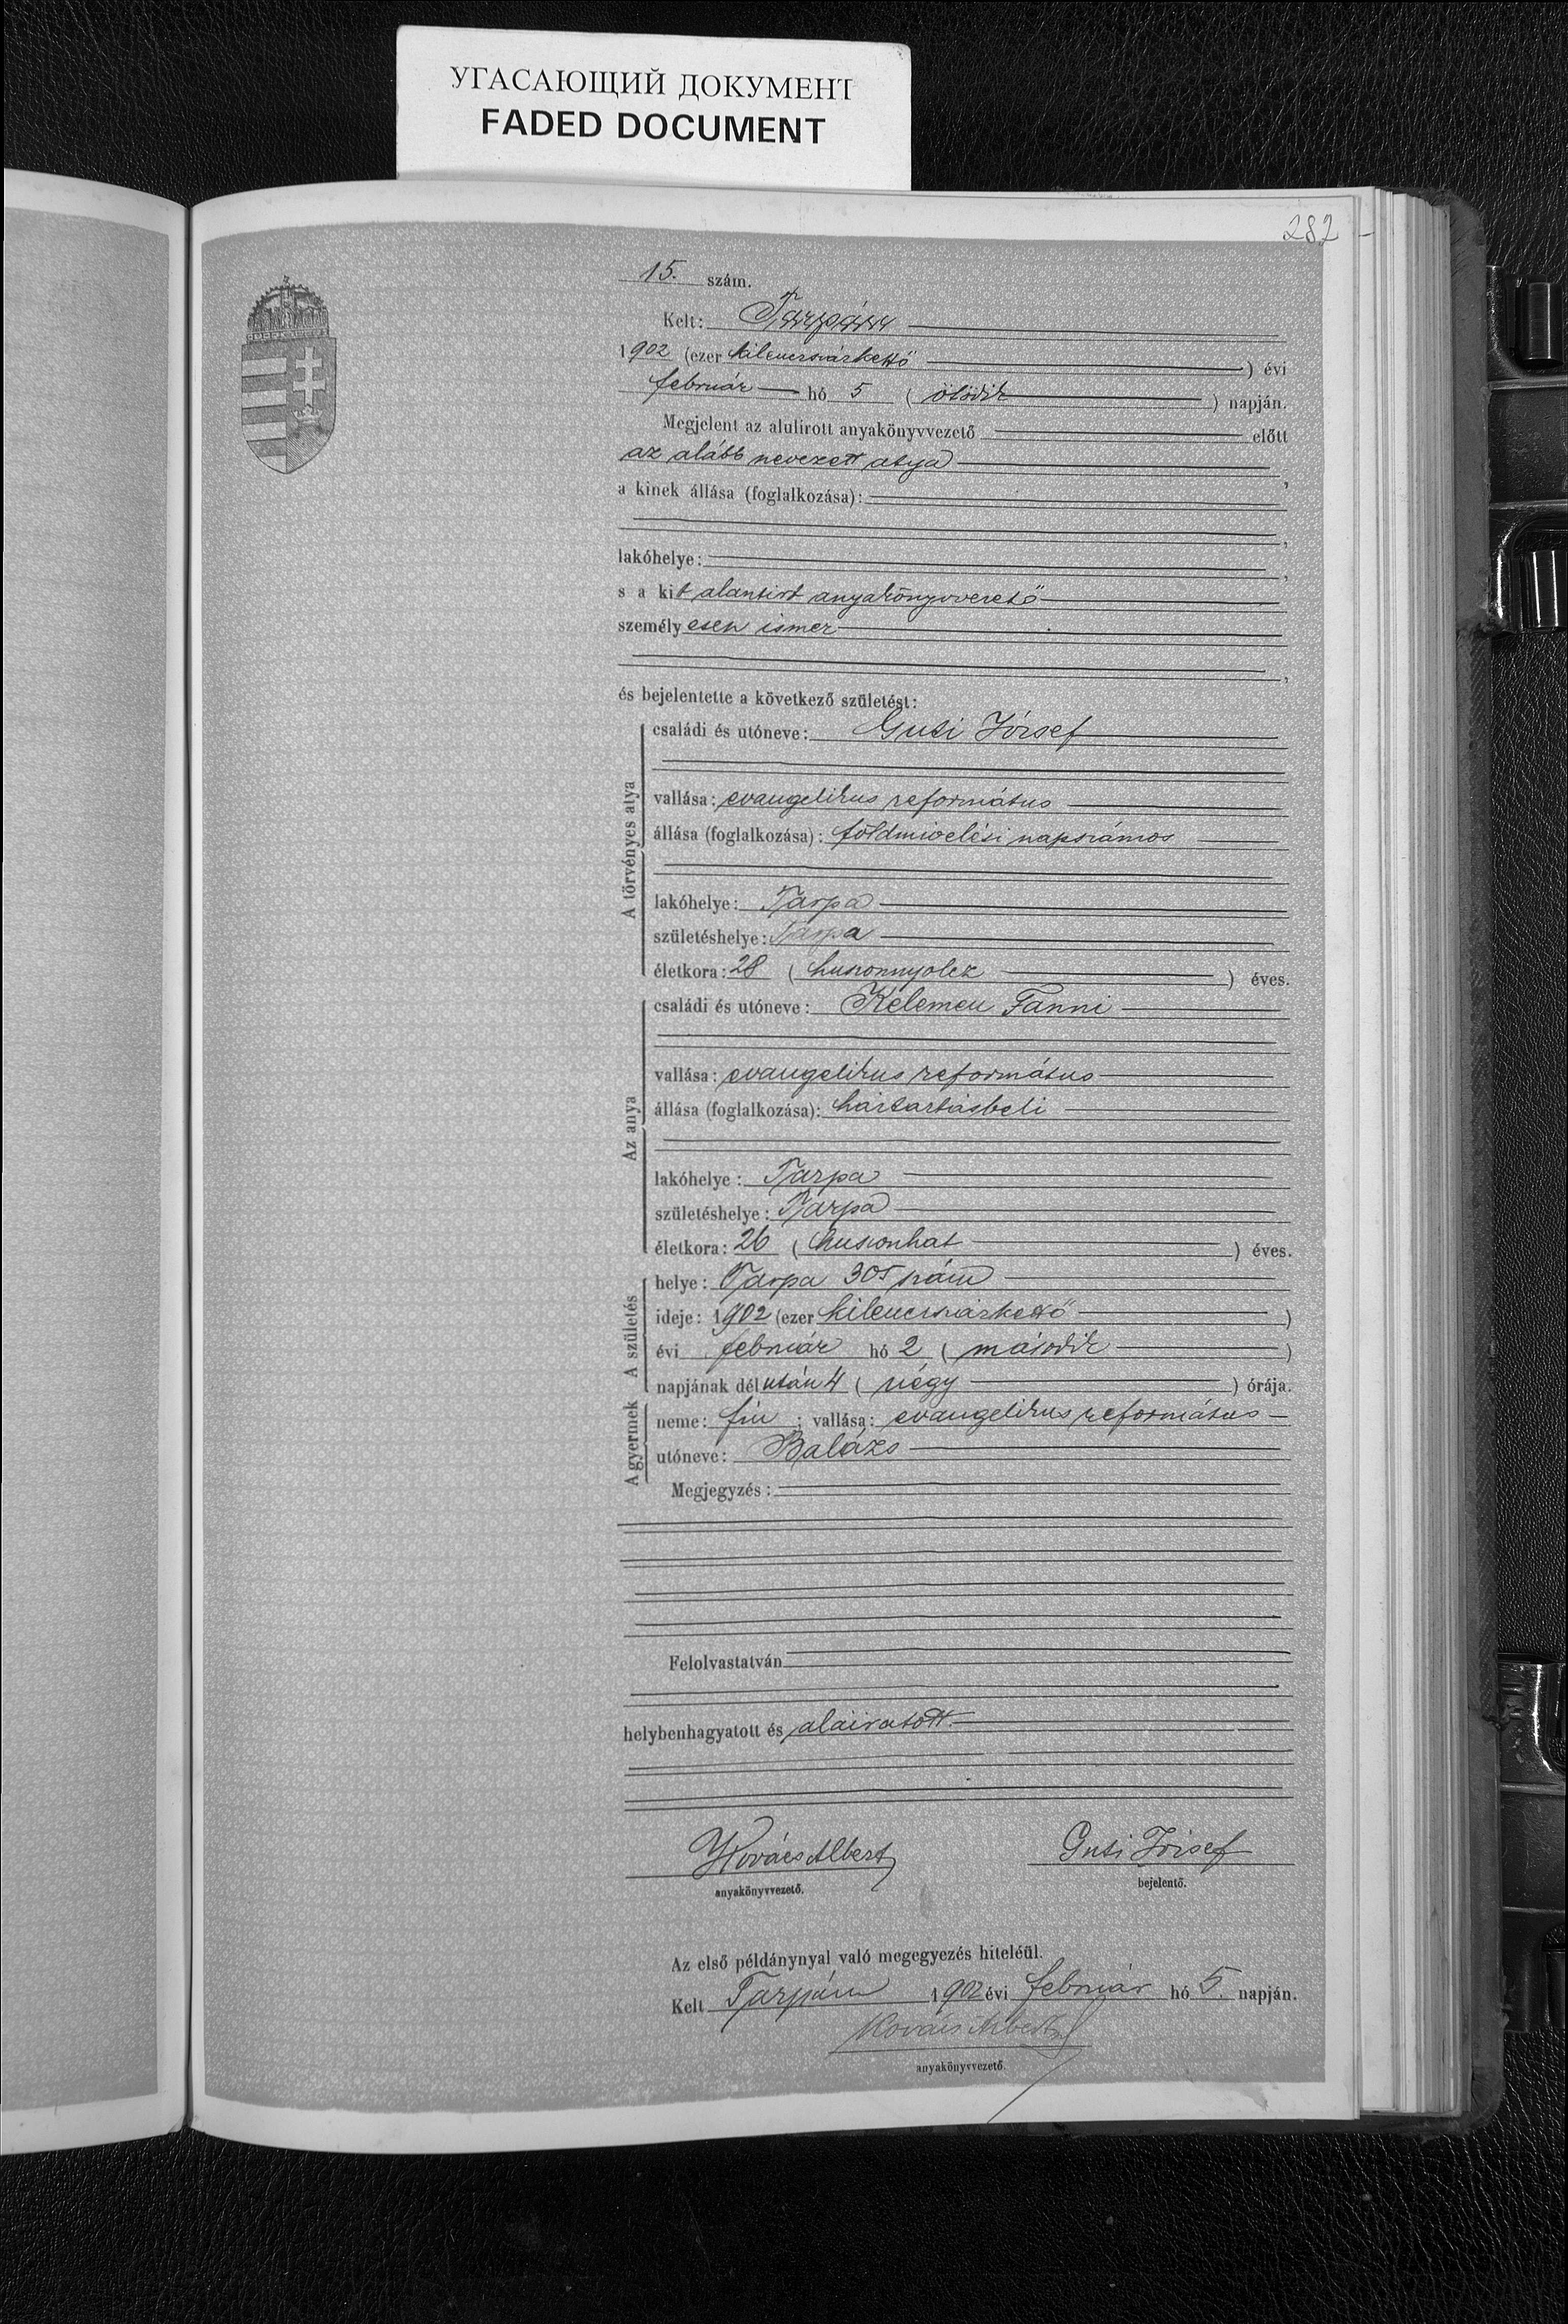 УГАСАЮЩИЙ ДОКУМЕНТ
FADED DOCUMENT
282
15. szám.
Kelt: Tarpán
1902 (ezer kilenczszázkettő) évi
február hó 5 (ötödik) napján.
Megjelent az alulirott anyakönyvvezető előtt
az alább nevezett atya,
a kinek állása (foglalkozása):
lakóhelye:
s a kit alantirt anyakönyvvezető
személyesen ismer
és bejelentette a következő születést:
A törvényes atya
családi és utóneve: Guti József
vallása: evangelikus református
állása (foglalkozása): földmivelési napszámos
lakóhelye: Tarpa
születéshelye: Tarpa
életkora: 28 (huszonnyolcz) éves.
Az anya
családi és utóneve: Kelemen Fanni
vallása: evangelikus református
állása (foglalkozása): háztartásbeli
lakóhelye: Tarpa
születéshelye: Tarpa
életkora: 26 (huszonhat) éves.
A születés
helye: Tarpa 305 szám
ideje: 1902 (ezer kilenczszázkettő)
évi február hó 2 (második)
napjának délután 4 (négy) órája.
A gyermek
neme: fiu; vallása: evangelikus református
utóneve: Balázs
Megjegyzés:
Felolvastatván
helybenhagyatott és aláiratott.
Kovács Albert Guti József
anyakönyvvezető. bejelentő.
Az első példánynyal való megegyezés hiteléül.
Kelt Tarpán 1902 évi február hó 5. napján.
Kovács Albert
anyakönyvvezető.